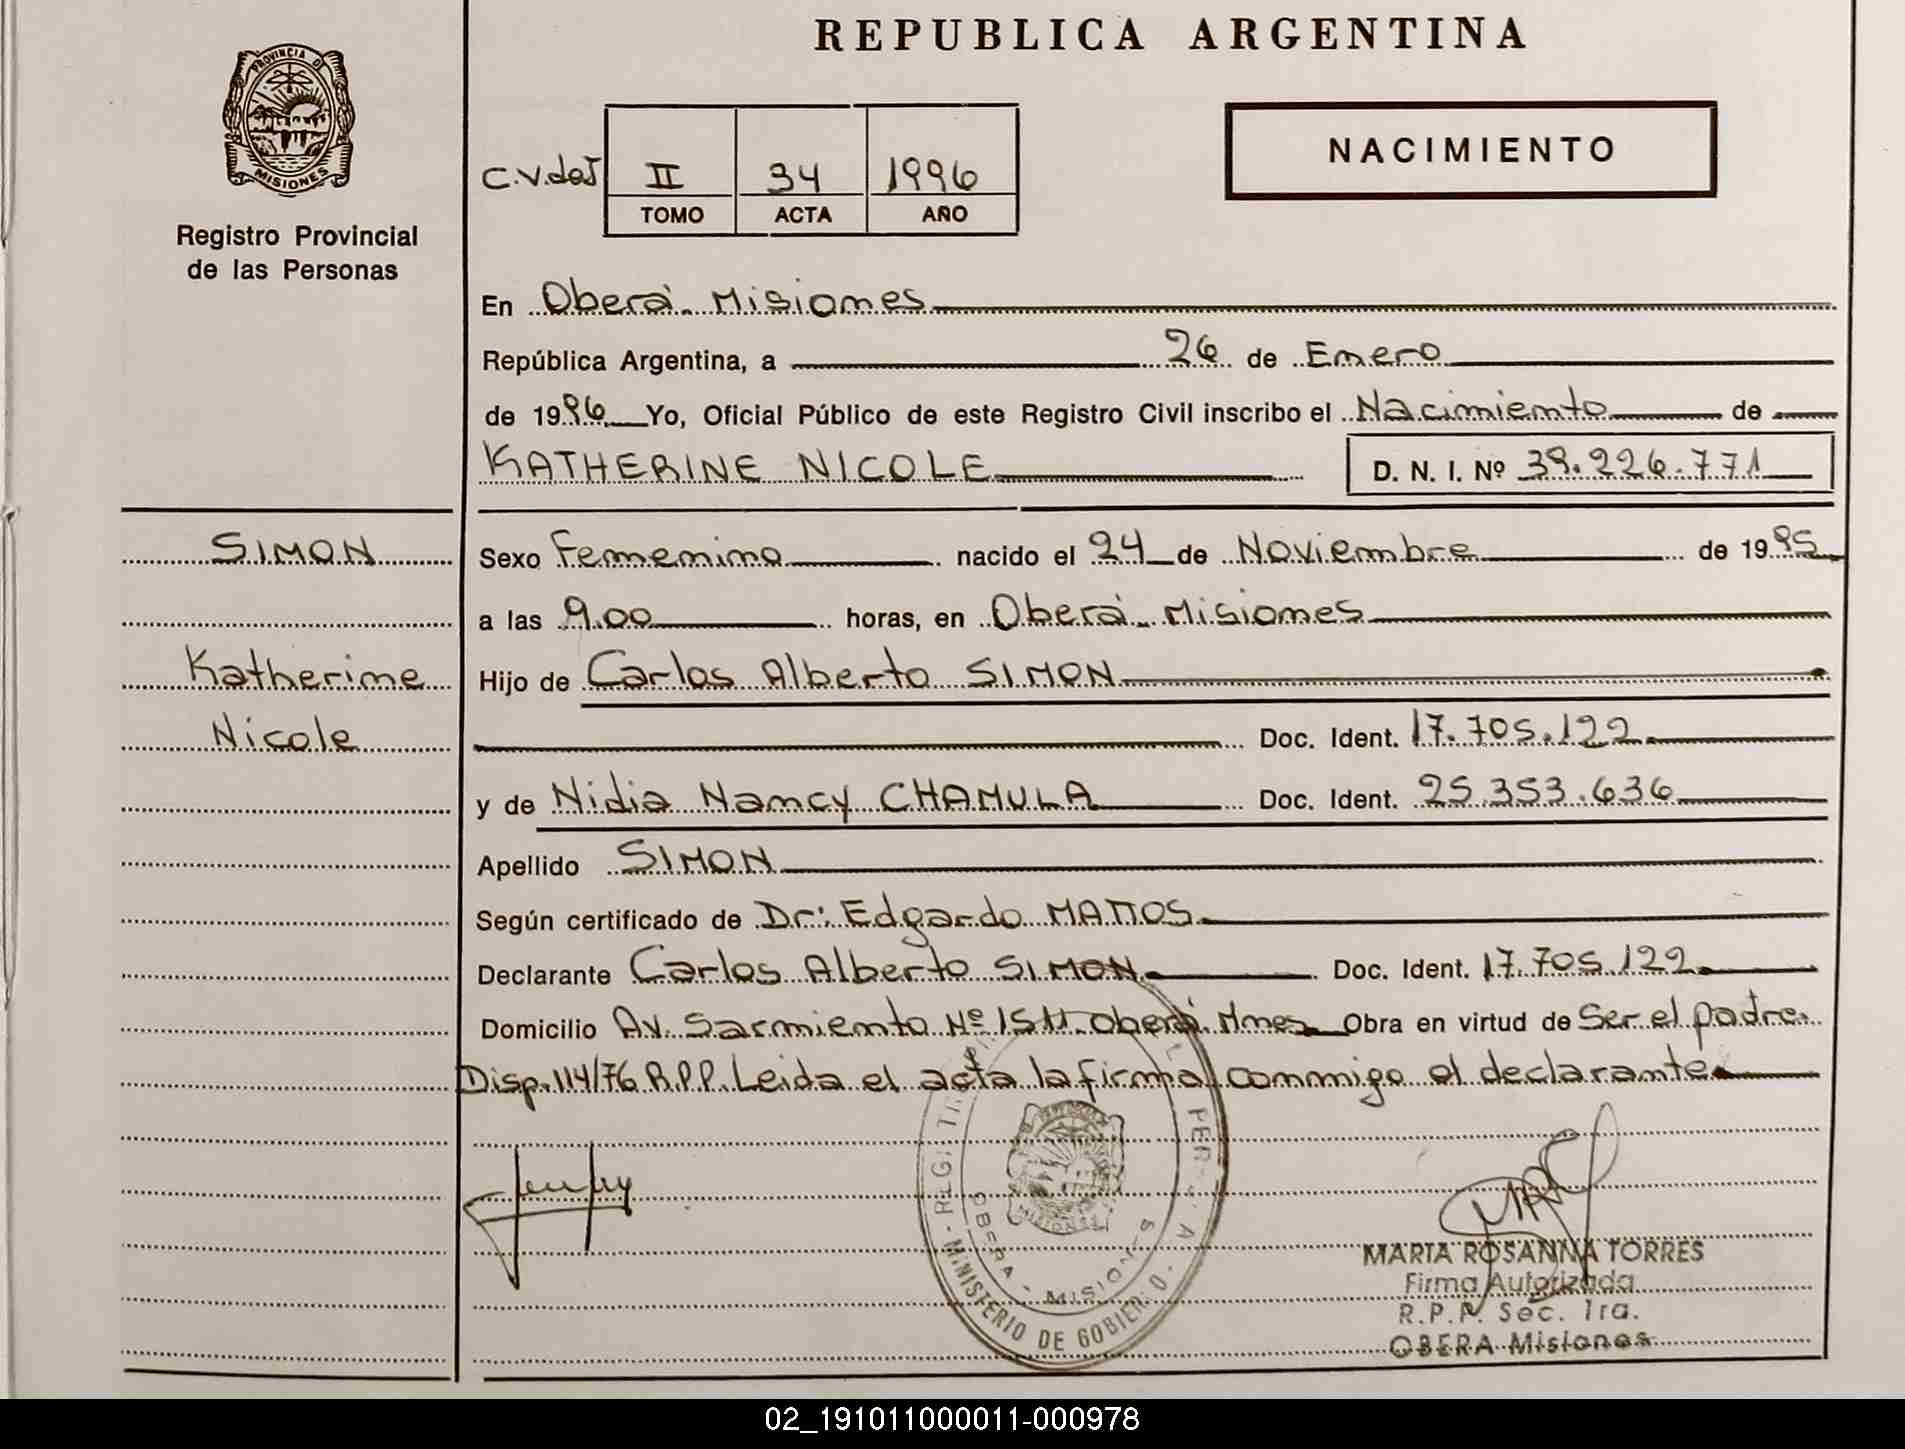 REPUBLICA ARGENTINA
PROVINCIA DE
MISIONES
Registro Provincial
de las Personas
NACIMIENTO
C.V.deJ II 34 1996
TOMO ACTA AÑO
En Oberá - Misiones
República Argentina, a 26 de Enero
de 1996 Yo, Oficial Público de este Registro Civil inscribo el Nacimiento de
KATHERINE NICOLE D. N. I. Nº 39.226.771
SIMON
Katherine
Nicole
Sexo Femenino nacido el 24 de Noviembre de 1995
a las 9.00 horas, en Oberá - Misiones
Hijo de Carlos Alberto SIMON
Doc. Ident. 17.705.122
y de Nidia Nancy CHAMULA Doc. Ident. 25.353.636
Apellido SIMON
Según certificado de Dr: Edgardo MATTOS
Declarante Carlos Alberto SIMON Doc. Ident. 17.705.122
Domicilio Av. Sarmiento Nº 1511. Oberá. Mnes Obra en virtud de Ser el padre.
Disp. 114/76 R.P.P. Leida el acta la firma conmigo el declarante
OBERA - MISIONES
MISIONES
MINISTERIO DE GOBIERNO
MARIA ROSANNA TORRES
Firma Autorizada
R.P.P. Sec. 1ra.
OBERA-Misiones
02_191011000011-000978